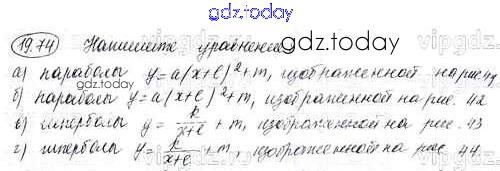 gdz.today
19.74 Напишите уравнение gdz.today
а) параболы y = a(x+l)²+m, изображенной на рис 41
б) параболы y = a(x+l)²+m, изображенной на рис. 42
в) гиперболы y = k/(x+l) + m, изображенной на рис. 43
г) гиперболы y = k/(x+l) + m, изображенной на рис 44.